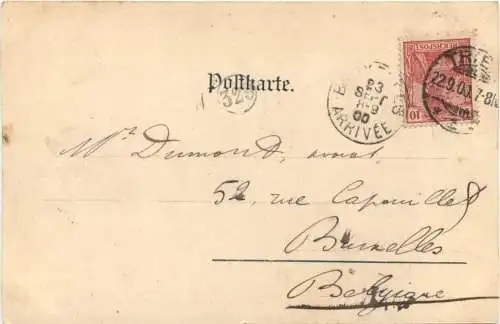 Postkarte.
323
23
SEPT
8-9
00
ARRIVÉE
TRIER
22.9.00. 7-8N.
REICHSPOST
10
Mr. Dumont, avocat
52, rue Capouillet
Bruxelles
Belgique